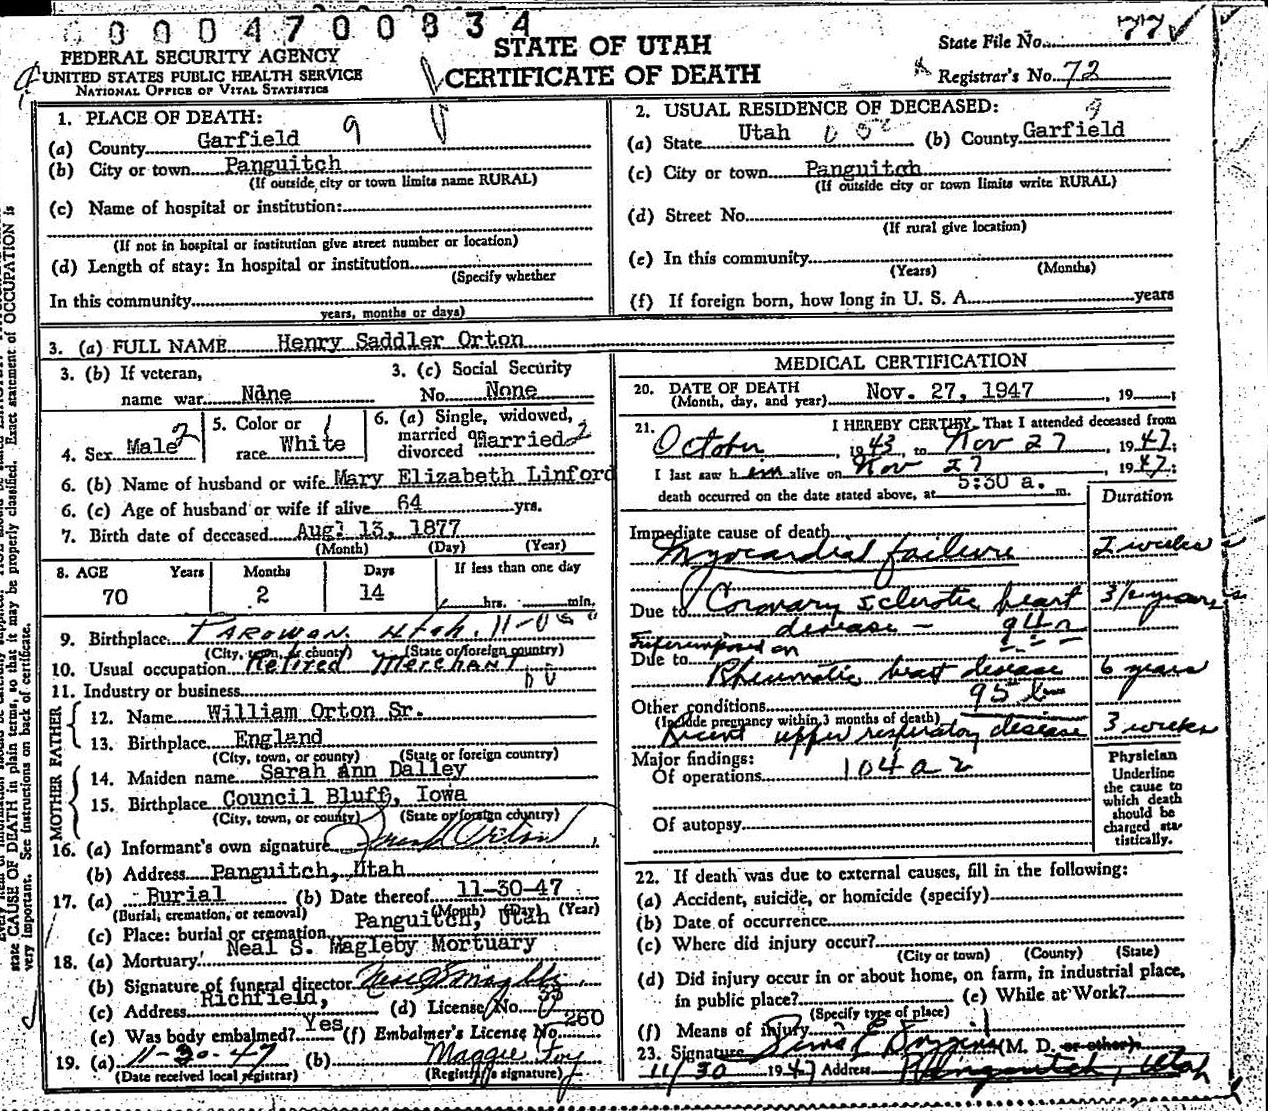 0000470 0834
FEDERAL SECURITY AGENCY
UNITED STATES PUBLIC HEALTH SERVICE
NATIONAL OFFICE OF VITAL STATISTICS
STATE OF UTAH
CERTIFICATE OF DEATH
State File No. 77
Registrar's No. 72
1. PLACE OF DEATH: 9
(a) County Garfield
(b) City or town Panguitch
(If outside city or town limits name RURAL)
(c) Name of hospital or institution:
(If not in hospital or institution give street number or location)
(d) Length of stay: In hospital or institution
(Specify whether
In this community
years, months or days)
2. USUAL RESIDENCE OF DECEASED: 9
(a) State Utah (b) County Garfield
(c) City or town Panguitch
(If outside city or town limits write RURAL)
(d) Street No.
(If rural give location)
(e) In this community
(Years) (Months)
(f) If foreign born, how long in U. S. A. years
3. (a) FULL NAME Henry Saddler Orton
3. (b) If veteran, 3. (c) Social Security
name war None No. None
4. Sex Male 2
5. Color or
race White 1
6. (a) Single, widowed,
married or
divorced Married 2
6. (b) Name of husband or wife Mary Elizabeth Linford
6. (c) Age of husband or wife if alive 64 yrs.
7. Birth date of deceased Aug. 13, 1877
(Month) (Day) (Year)
8. AGE Years Months Days If less than one day
70 2 14 hrs. min.
9. Birthplace PAROWAN. Utah.
(City, town, or county) (State or foreign country)
10. Usual occupation Retired Merchant
11. Industry or business
FATHER
12. Name William Orton Sr.
13. Birthplace England
(City, town, or county) (State or foreign country)
MOTHER
14. Maiden name Sarah Ann Dalley
15. Birthplace Council Bluff, Iowa
(City, town, or county) (State or foreign country)
16. (a) Informant's own signature Orton
(b) Address Panguitch, Utah
17. (a) Burial (b) Date thereof 11-30-47
(Burial, cremation, or removal) (Month) (Day) (Year)
(c) Place: burial or cremation Panguitch, Utah
18. (a) Mortuary Neal S. Magleby Mortuary
(b) Signature of funeral director Neal S Magleby
(c) Address Richfield, (d) License No. 53
(e) Was body embalmed? Yes (f) Embalmer's License No. 260
19. (a) 11-30-47 (b) Maggie Foy
(Date received local registrar) (Registrar's signature)
MEDICAL CERTIFICATION
20. DATE OF DEATH
(Month, day, and year) Nov. 27, 1947, 19 ;
21. I HEREBY CERTIFY, That I attended deceased from
October, 1943, to Nov 27, 1947;
I last saw him alive on Nov 27, 1947;
death occurred on the date stated above, at 5:30 a. m.
Duration
Immediate cause of death
Myocardial failure 2 weeks
Due to Coronary sclerotic heart 3 1/2 years
disease —
Superimposed on
Due to Rheumatic heart disease 6 years
Other conditions
(Include pregnancy within 3 months of death)
Recent upper respiratory disease 3 weeks
Major findings:
Of operations 104 a 2
Of autopsy
Physician
Underline
the cause to
which death
should be
charged sta-
tistically.
22. If death was due to external causes, fill in the following:
(a) Accident, suicide, or homicide (specify)
(b) Date of occurrence
(c) Where did injury occur?
(City or town) (County) (State)
(d) Did injury occur in or about home, on farm, in industrial place,
in public place? (e) While at Work?
(Specify type of place)
(f) Means of injury
23. Signature (M. D. or other)
11/30 1947 Address Panguitch, Utah
state CAUSE OF DEATH in plain terms, so that it may be properly classified. Exact statement of OCCUPATION is
very important. See instructions on back of certificate.